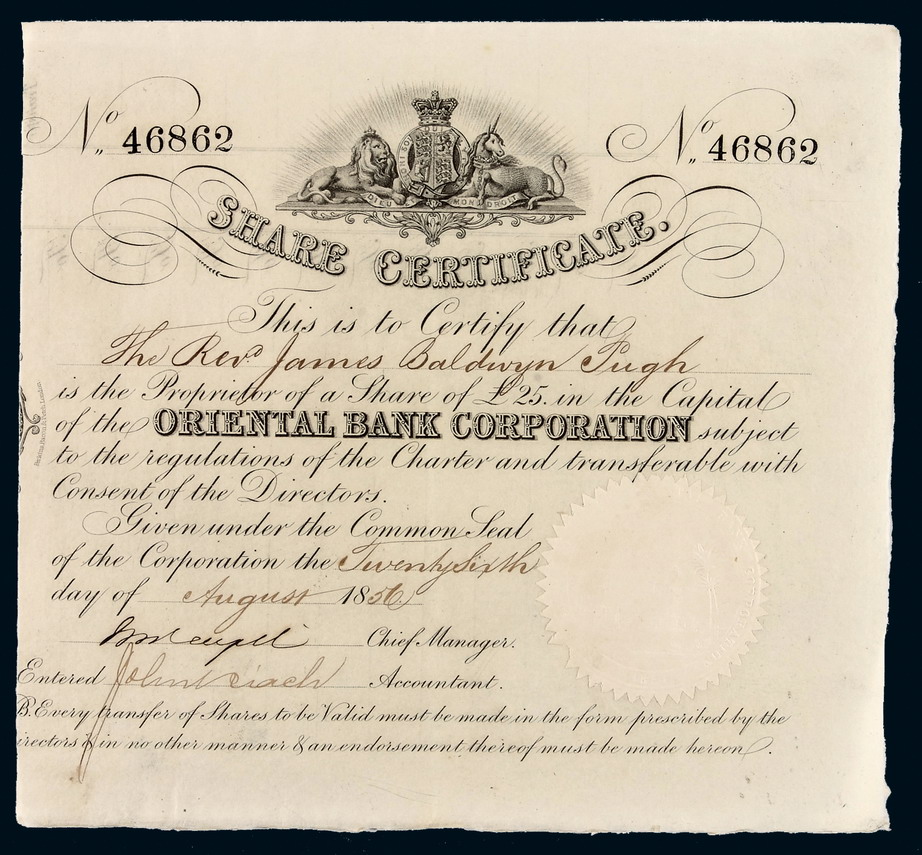 No 46862
No 46862
DIEU MON DROIT
SHARE CERTIFICATE.
This is to Certify that
The Revd James Baldwyn Pugh
is the Proprietor of a Share of £25. in the Capital
of the ORIENTAL BANK CORPORATION subject
to the regulations of the Charter and transferable with
Consent of the Directors.
Given under the Common Seal
of the Corporation the Twenty Sixth
day of August 1856
Chief Manager.
Entered John Accountant.
B. Every transfer of Shares to be Valid must be made in the form prescribed by the
irectors & in no other manner & an endorsement thereof must be made hereon.